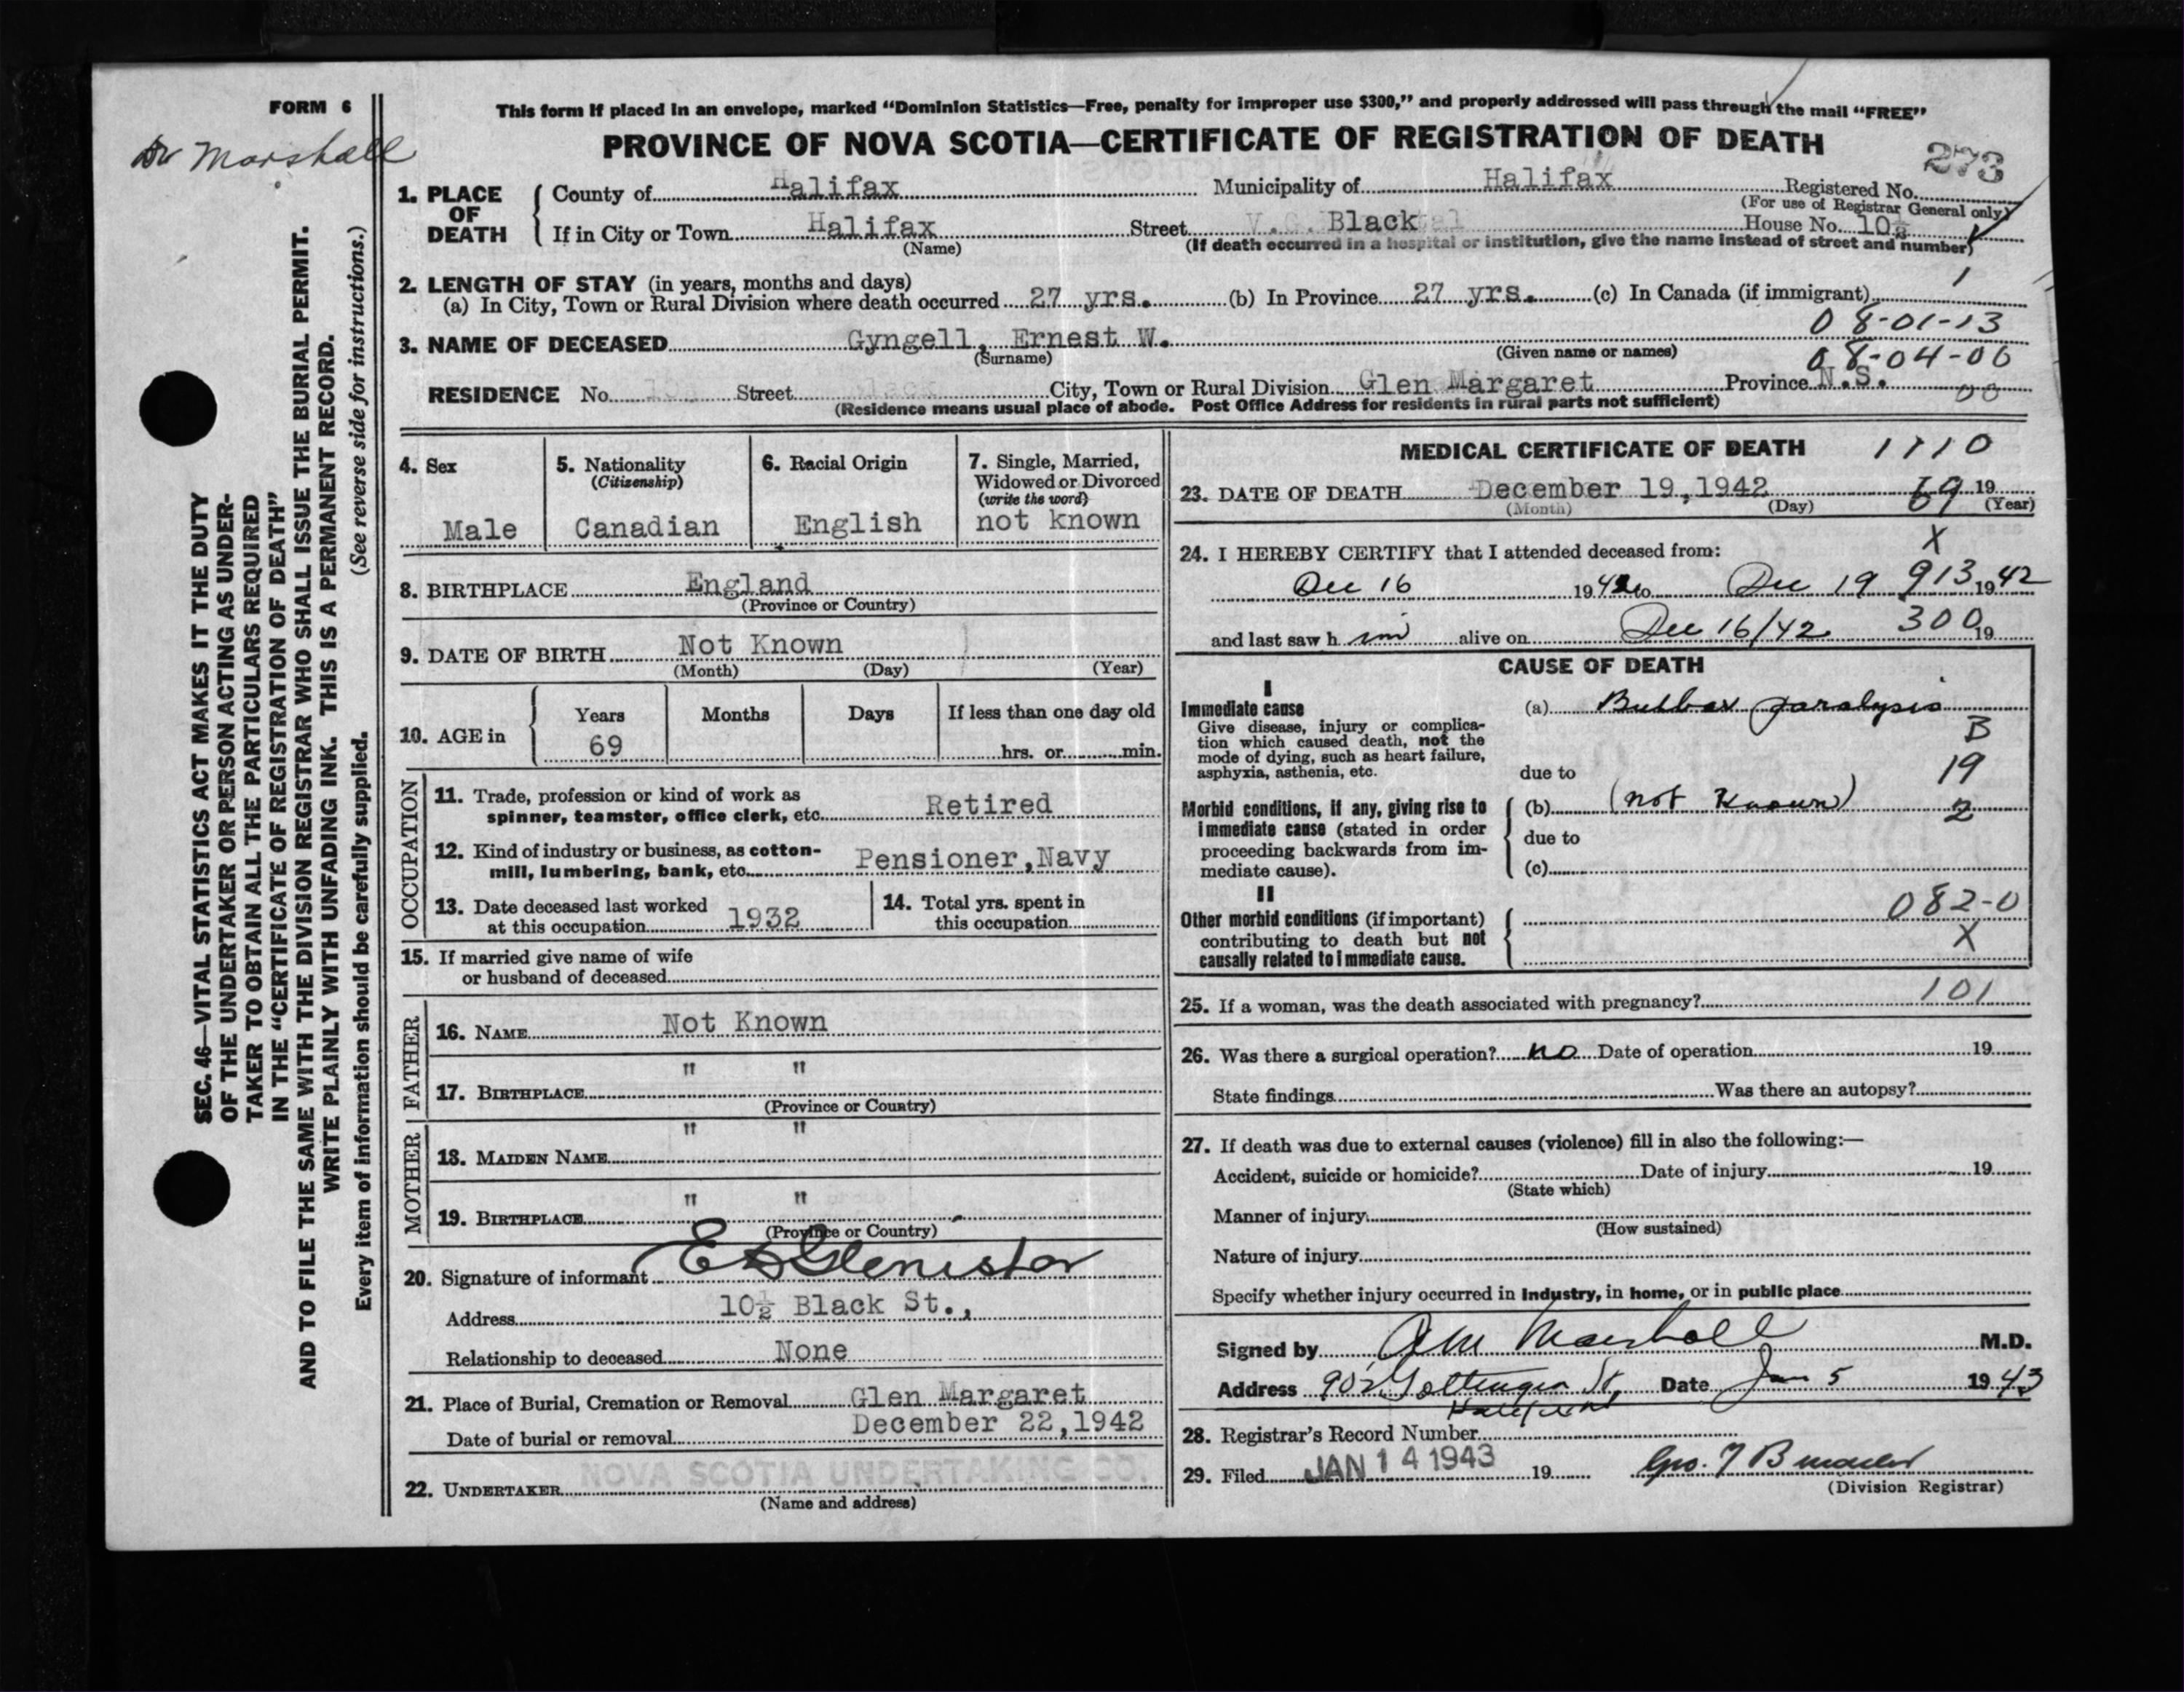 FORM 6
Dr Marshall
This form if placed in an envelope, marked “Dominion Statistics—Free, penalty for improper use $300,” and properly addressed will pass through the mail “FREE”
PROVINCE OF NOVA SCOTIA—CERTIFICATE OF REGISTRATION OF DEATH
273
1. PLACE OF DEATH
County of Halifax Municipality of Halifax Registered No.
(For use of Registrar General only)
If in City or Town Halifax Street Black House No. 10½
(Name) (If death occurred in a hospital or institution, give the name instead of street and number)
2. LENGTH OF STAY (in years, months and days) 1
(a) In City, Town or Rural Division where death occurred 27 yrs. (b) In Province 27 yrs. (c) In Canada (if immigrant)
08-01-13
3. NAME OF DECEASED Gyngell, Ernest W.
(Surname) (Given name or names) 08-04-06
RESIDENCE No. Street City, Town or Rural Division Glen Margaret Province N.S.
00
(Residence means usual place of abode. Post Office Address for residents in rural parts not sufficient)
4. Sex Male
5. Nationality (Citizenship) Canadian
6. Racial Origin English
7. Single, Married, Widowed or Divorced (write the word) not known
8. BIRTHPLACE England
(Province or Country)
9. DATE OF BIRTH Not Known
(Month) (Day) (Year)
10. AGE in Years 69 Months Days If less than one day old
hrs. or min.
OCCUPATION
11. Trade, profession or kind of work as
spinner, teamster, office clerk, etc. Retired
12. Kind of industry or business, as cotton-
mill, lumbering, bank, etc. Pensioner,Navy
13. Date deceased last worked
at this occupation 1932
14. Total yrs. spent in
this occupation
15. If married give name of wife
or husband of deceased
FATHER
16. NAME Not Known
17. BIRTHPLACE " "
(Province or Country)
MOTHER
18. MAIDEN NAME " "
19. BIRTHPLACE " "
(Province or Country)
20. Signature of informant E D Glenister
Address 10½ Black St.,
Relationship to deceased None
21. Place of Burial, Cremation or Removal Glen Margaret
Date of burial or removal December 22,1942
22. UNDERTAKER NOVA SCOTIA UNDERTAKING CO.
(Name and address)
MEDICAL CERTIFICATE OF DEATH 1110
23. DATE OF DEATH December 19,1942 69 19
(Month) (Day) (Year)
X
24. I HEREBY CERTIFY that I attended deceased from:
Dec 16 1942 to Dec 19 913 1942
and last saw h im alive on Dec 16/42 300 19
CAUSE OF DEATH
I
Immediate cause
Give disease, injury or complica-
tion which caused death, not the
mode of dying, such as heart failure,
asphyxia, asthenia, etc.
(a) Bulbar paralysis
B
due to 19
Morbid conditions, if any, giving rise to
immediate cause (stated in order
proceeding backwards from im-
mediate cause).
(b) (not Known) 2
due to
(c)
II
Other morbid conditions (if important)
contributing to death but not
causally related to immediate cause.
082-0
X
25. If a woman, was the death associated with pregnancy? 101
26. Was there a surgical operation? no Date of operation 19
State findings Was there an autopsy?
27. If death was due to external causes (violence) fill in also the following:—
Accident, suicide or homicide? Date of injury 19
(State which)
Manner of injury
(How sustained)
Nature of injury
Specify whether injury occurred in industry, in home, or in public place
Signed by A M Marshall M.D.
Address 902 Gottingen St, Date Jan 5 1943
Halifax
28. Registrar's Record Number
29. Filed JAN 14 1943 19
(Division Registrar)
SEC. 46—VITAL STATISTICS ACT MAKES IT THE DUTY
OF THE UNDERTAKER OR PERSON ACTING AS UNDER-
TAKER TO OBTAIN ALL THE PARTICULARS REQUIRED
IN THE “CERTIFICATE OF REGISTRATION OF DEATH”
AND TO FILE THE SAME WITH THE DIVISION REGISTRAR WHO SHALL ISSUE THE BURIAL PERMIT.
WRITE PLAINLY WITH UNFADING INK. THIS IS A PERMANENT RECORD.
Every item of information should be carefully supplied. (See reverse side for instructions.)